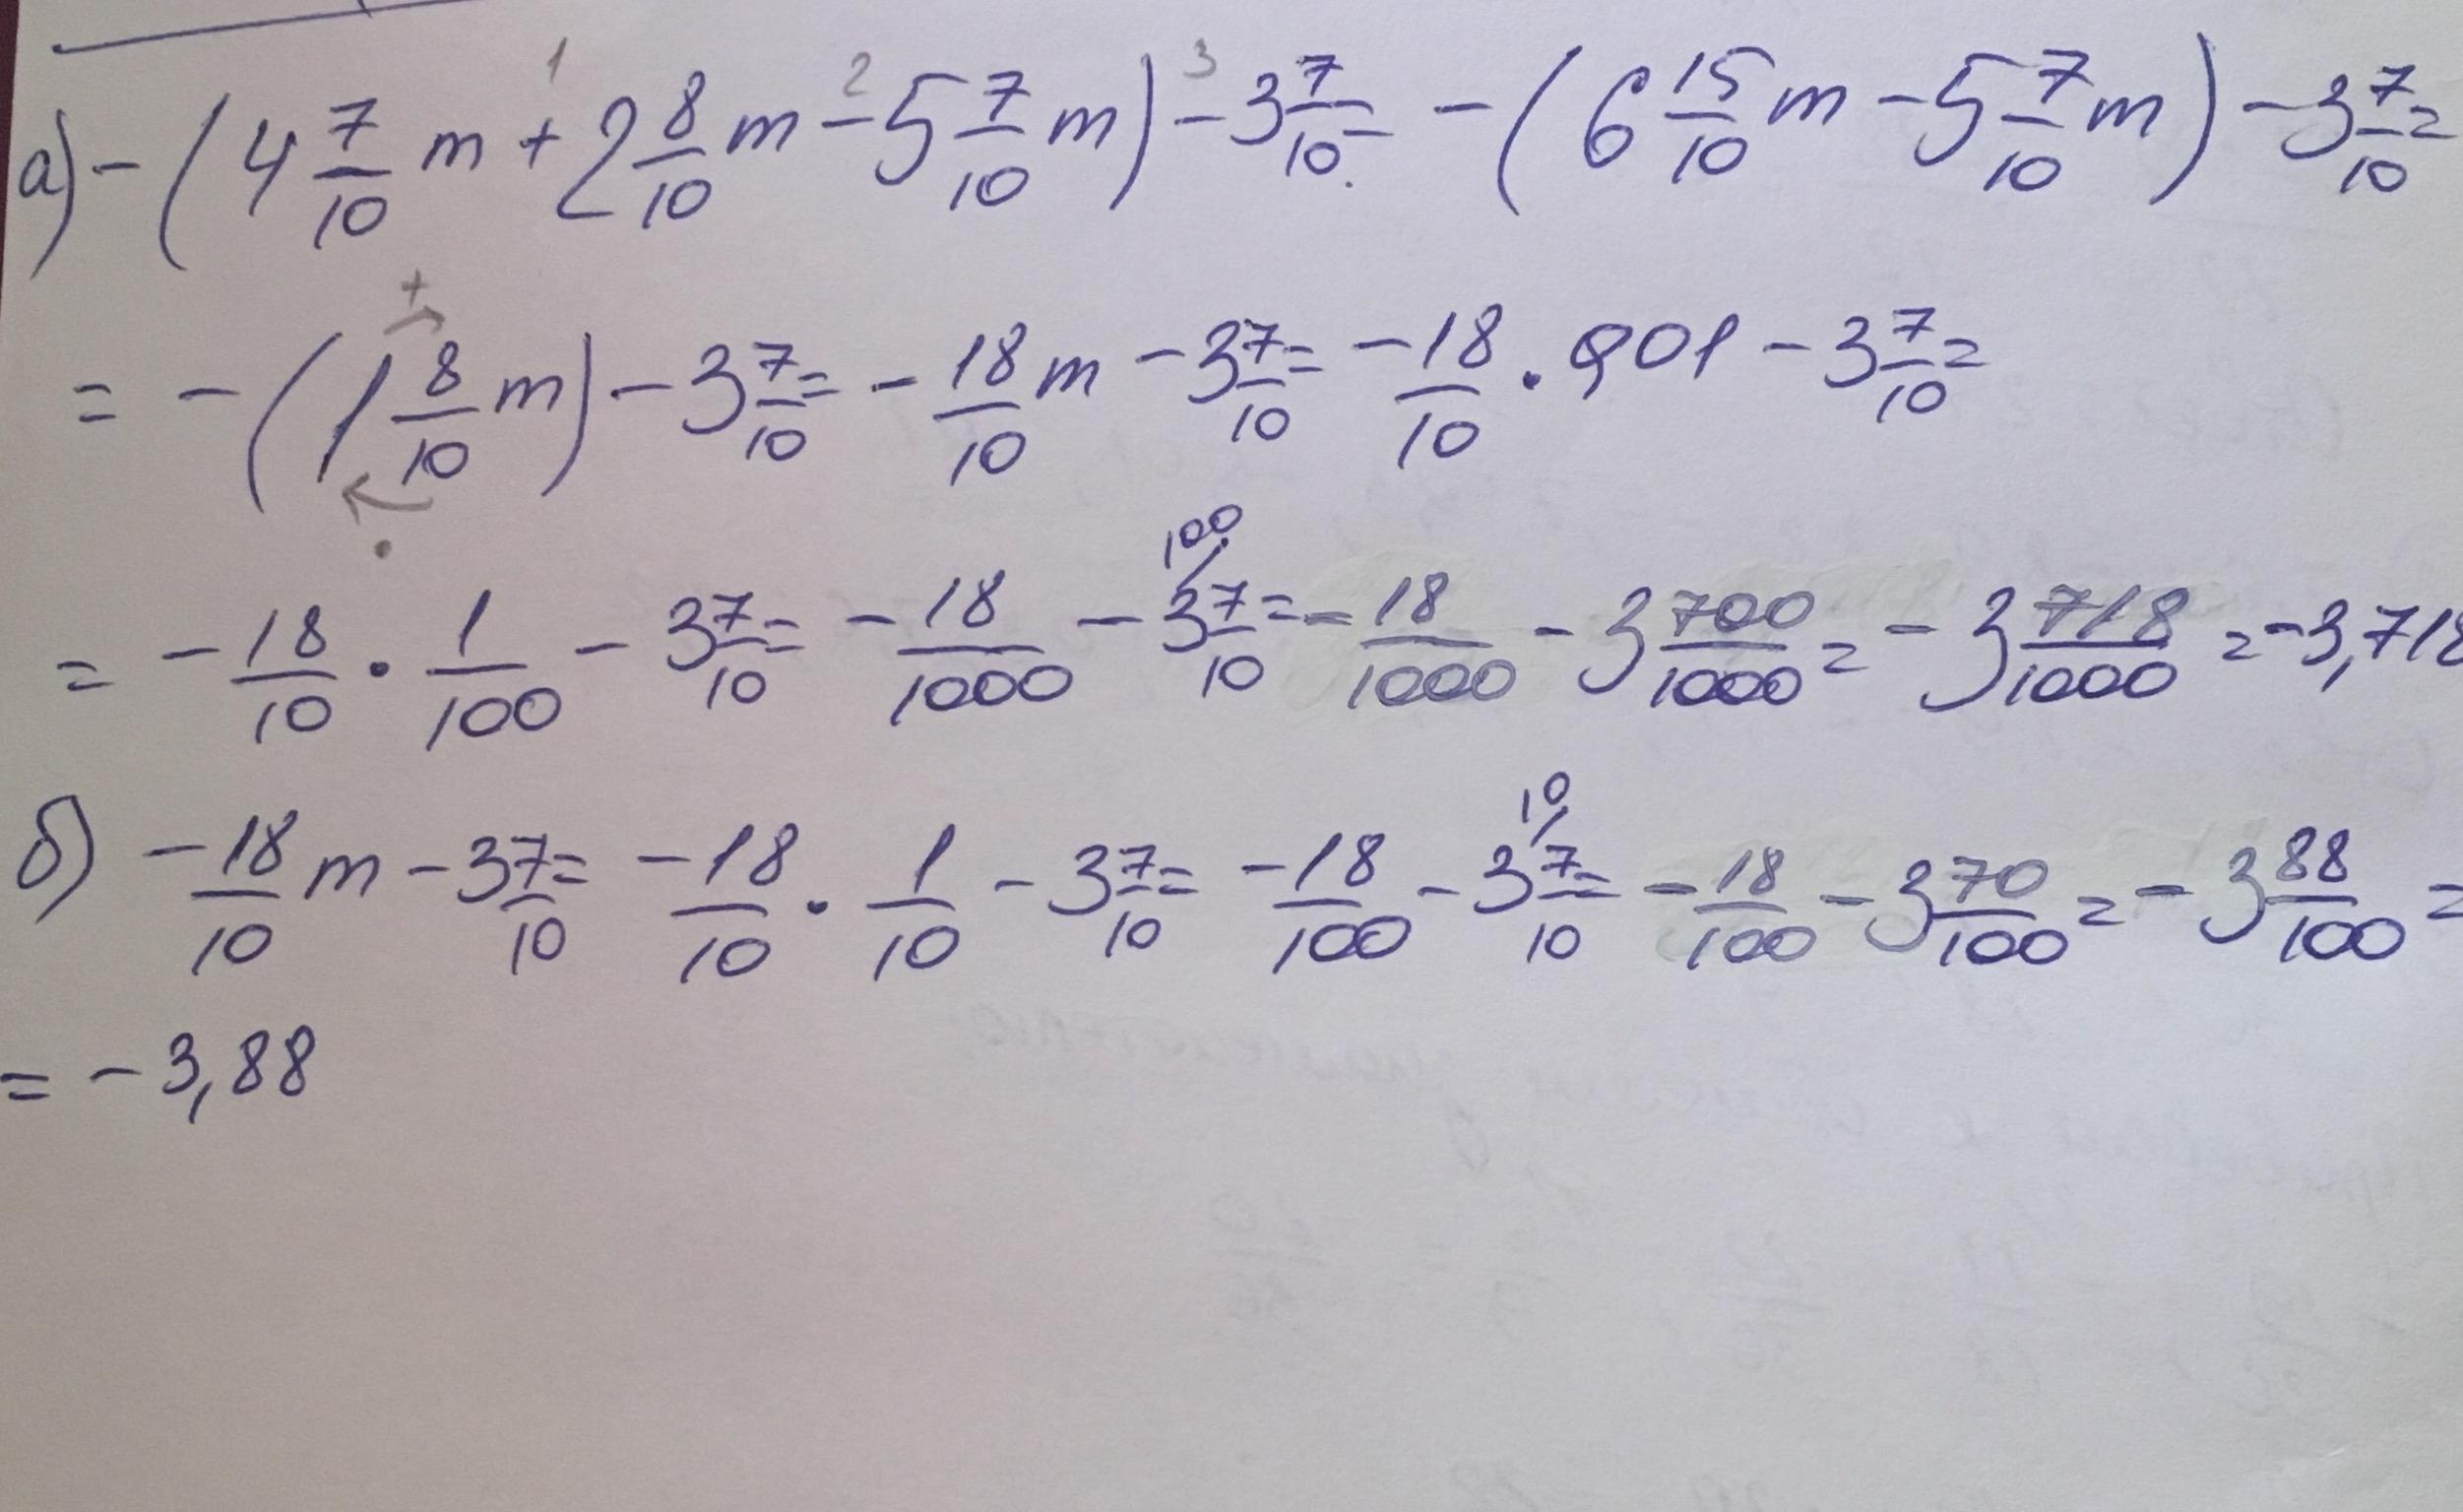 а) - (4 7/10 m + 2 8/10 m - 5 7/10 m) - 3 7/10 = - (6 15/10 m - 5 7/10 m) - 3 7/10 =
= - (1 8/10 m) - 3 7/10 = - 18/10 m - 3 7/10 = - 18/10 · 0,01 - 3 7/10 =
= - 18/10 · 1/100 - 3 7/10 = - 18/1000 - 3 7/10 = - 18/1000 - 3 700/1000 = - 3 718/1000 = - 3,718
б) - 18/10 m - 3 7/10 = - 18/10 · 1/10 - 3 7/10 = - 18/100 - 3 7/10 = - 18/100 - 3 70/100 = - 3 88/100 =
= - 3,88